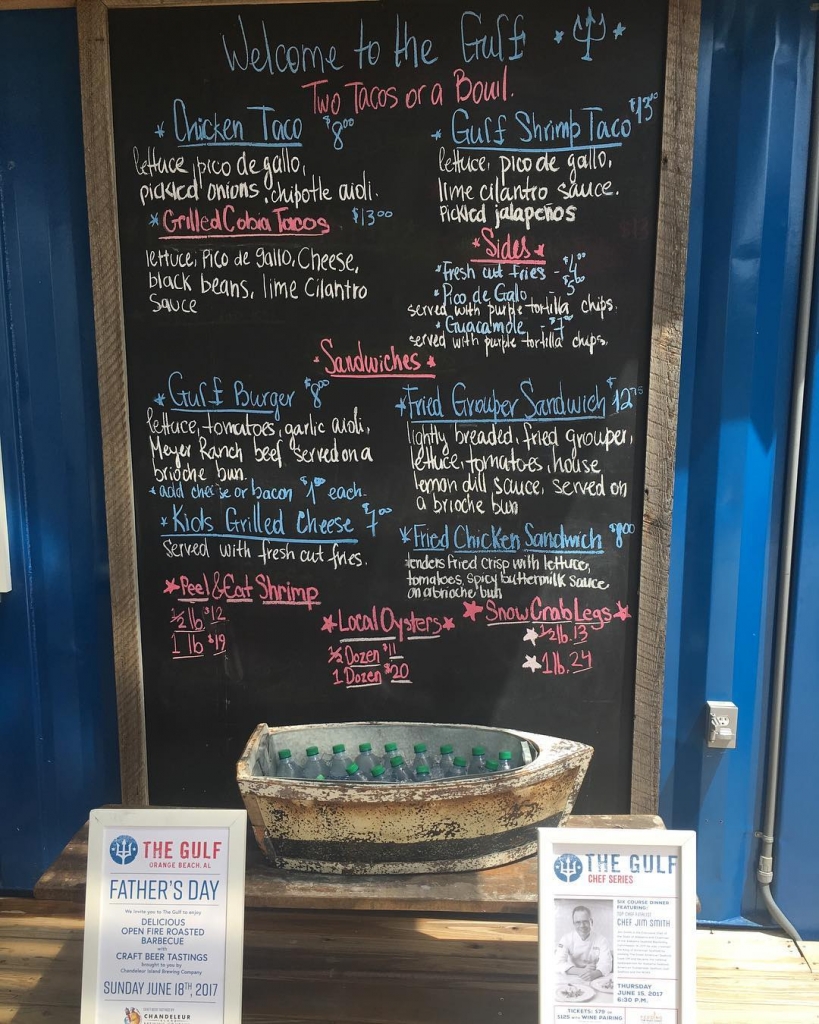 Welcome to the Gulf
Two Tacos or a Bowl.
*Chicken Taco $8.00
lettuce, pico de gallo,
pickled onions, chipotle aioli.
*Grilled Cobia Tacos $13.00
lettuce, Pico de Gallo, Cheese,
black beans, lime Cilantro
Sauce
*Gulf Shrimp Taco $13.00
lettuce, pico de gallo,
lime cilantro sauce.
Pickled jalapeños
*Sides*
*Fresh cut fries - $4.00
*Pico de Galo - $5.00
served with purple tortilla chips.
*Guacamole - $7
served with purple tortilla chips.
*Sandwiches*
*Gulf Burger $8.00
lettuce, tomatoes, garlic aioli,
Meyer Ranch beef served on a
brioche bun.
*add cheese or bacon $1.00 each.
*Kids Grilled Cheese $7.00
Served with fresh cut fries.
*Fried Grouper Sandwich $12.75
lightly breaded, fried grouper,
lettuce, tomatoes, house
lemon dill sauce, served on
a brioche bun
*Fried Chicken Sandwich $8.00
tenders Fried Crisp with lettuce,
tomatoes, spicy buttermilk sauce
on a brioche bun
*Peel & Eat Shrimp
1/2 lb $12
1 lb $19
*Local Oysters*
1/2 Dozen $11
1 Dozen $20
*Snow Crab Legs*
*1/2 lb. 13
*1 lb. 24
THE GULF
ORANGE BEACH, AL
FATHER'S DAY
We invite you to The Gulf to enjoy
DELICIOUS
OPEN FIRE ROASTED
BARBECUE
with
CRAFT BEER TASTINGS
brought to you by
Chandeleur Island Brewing Company
SUNDAY JUNE 18TH, 2017
CHANDELEUR
THE GULF
CHEF SERIES
SIX COURSE DINNER
FEATURING:
CHEF JIM SMITH
THURSDAY
JUNE 15, 2017
6:30 P.M.
TICKETS: $79 or
$125 with WINE PAIRING